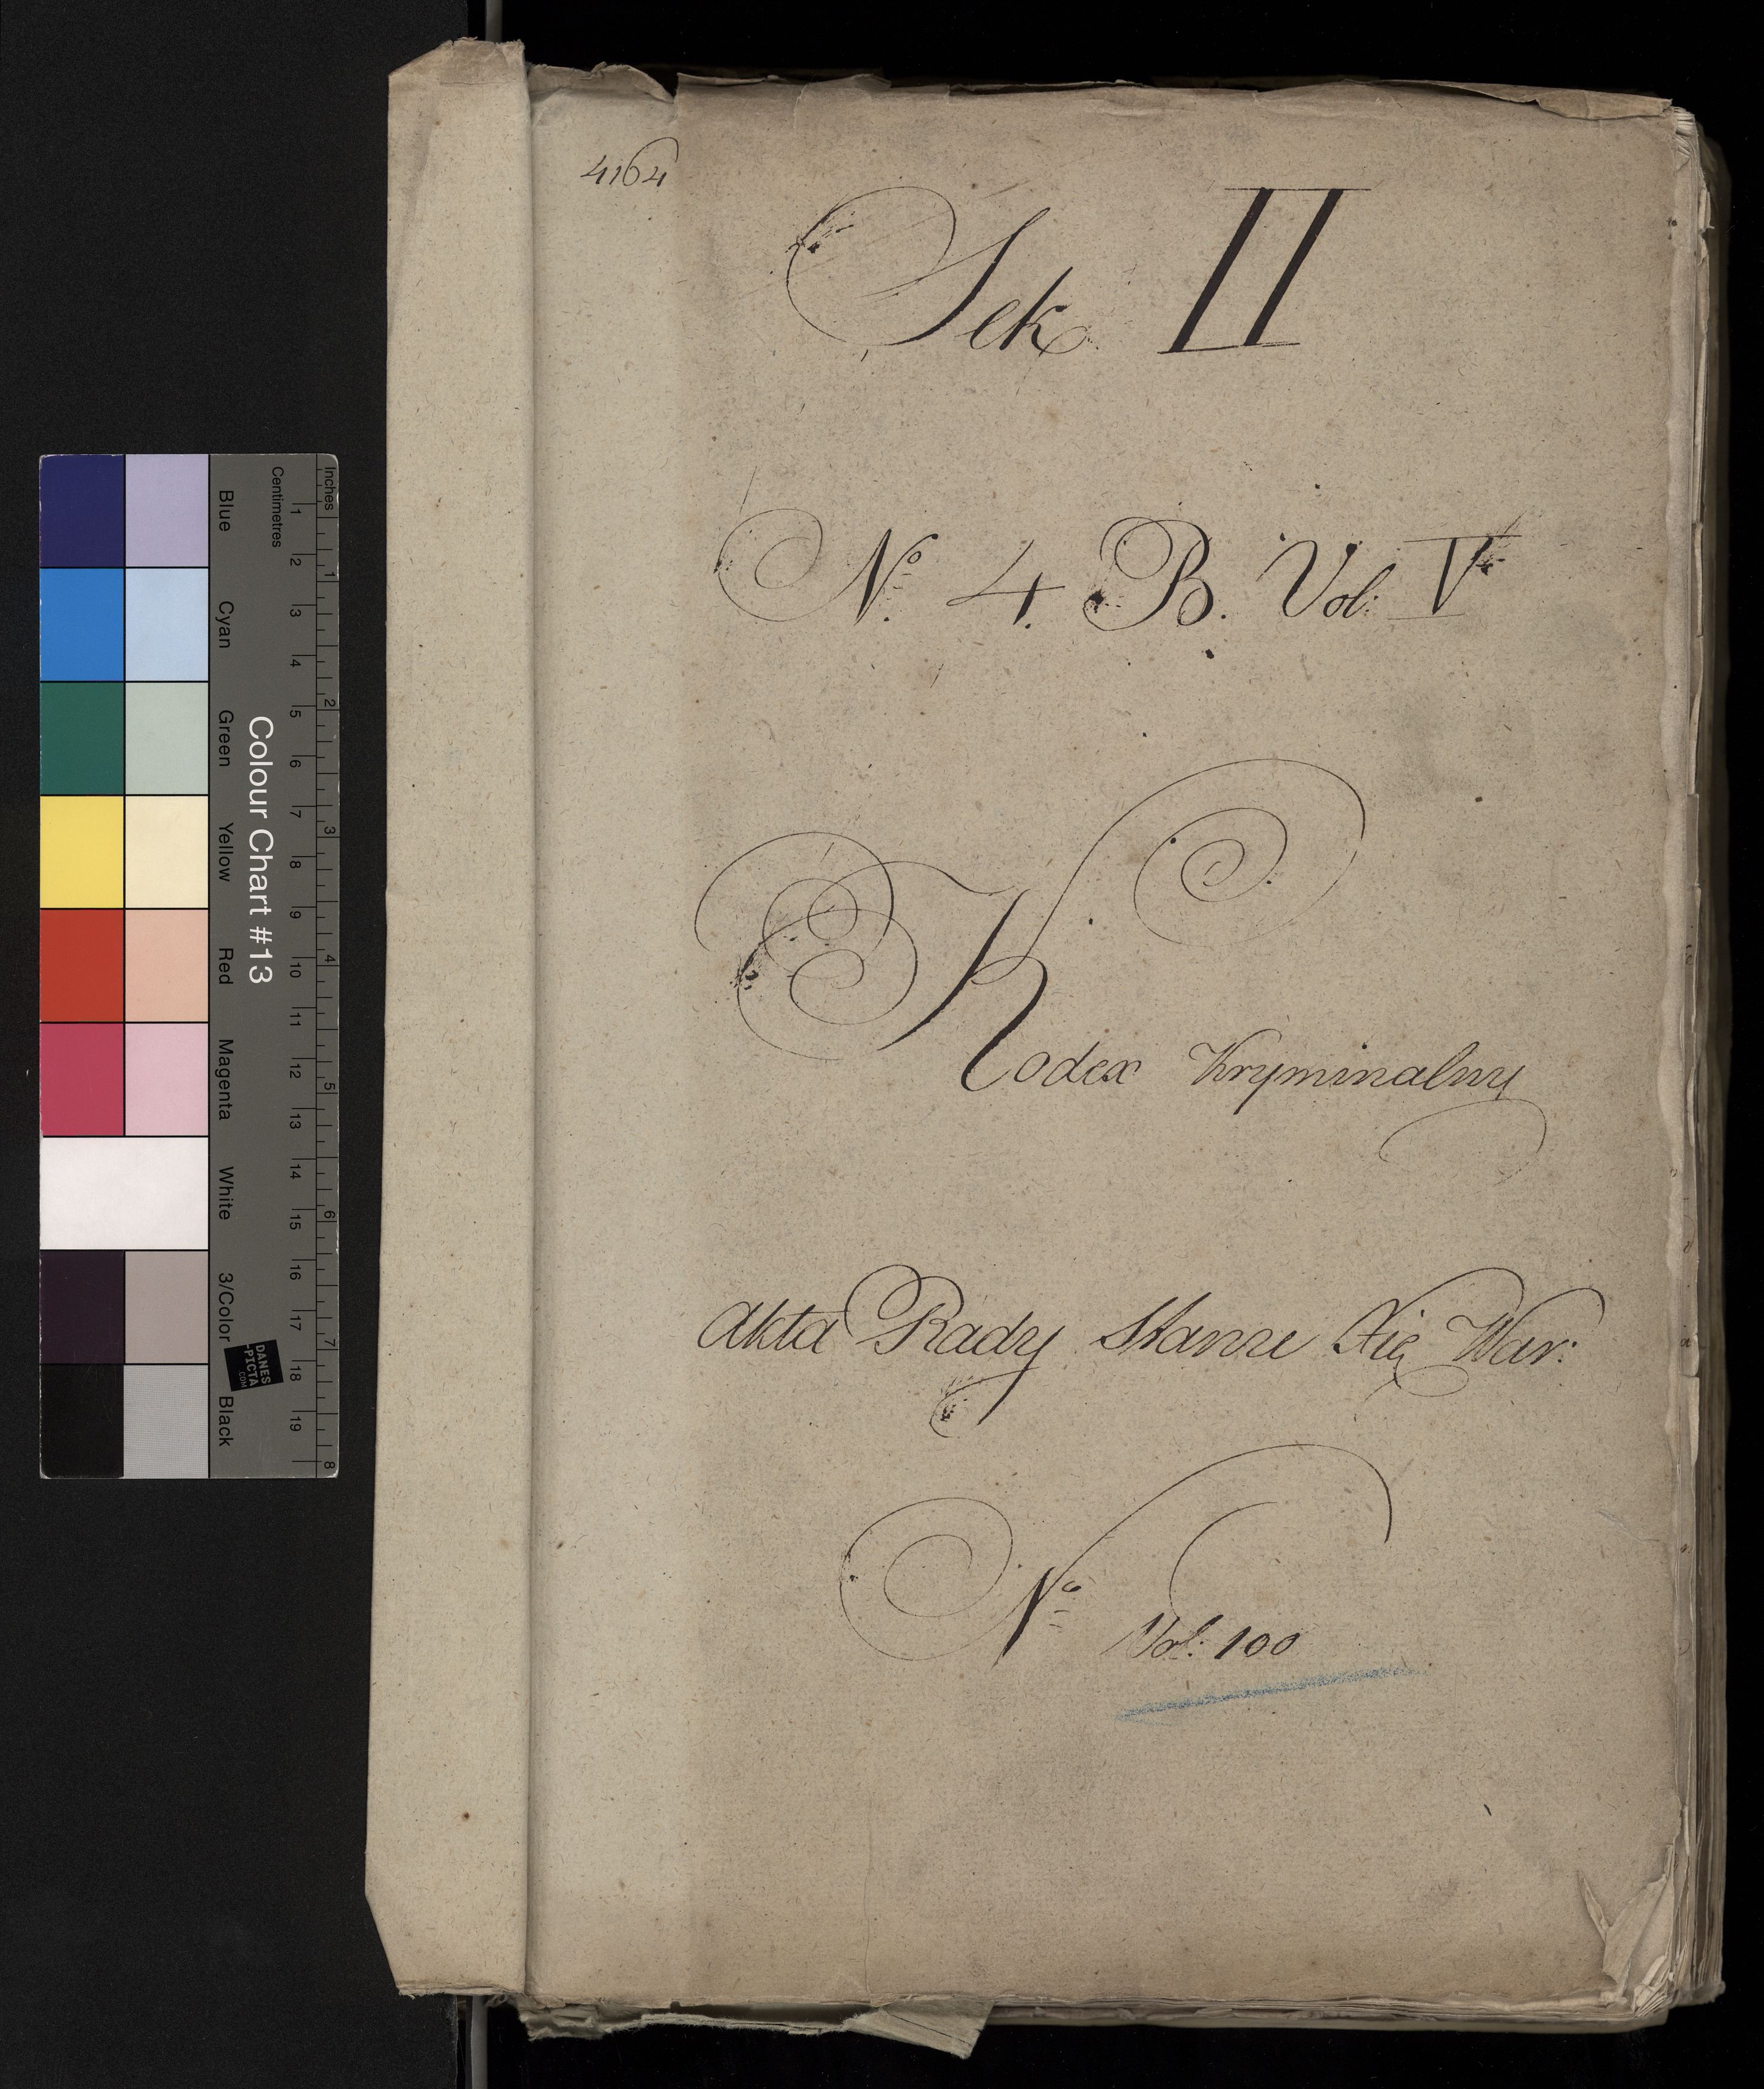 4164
Sek II
No 4. B. Vol: V
Kodex Kryminalny
Akta Rady Stanu Xię War:
No Vol: 100
Colour Chart #13
Inches
Centimetres
1 2 3 4 5 6 7 8 9 10 11 12 13 14 15 16 17 18 19
1 2 3 4 5 6 7 8
Blue Cyan Green Yellow Red Magenta White 3/Color Black
DANES
-PICTA
.COM